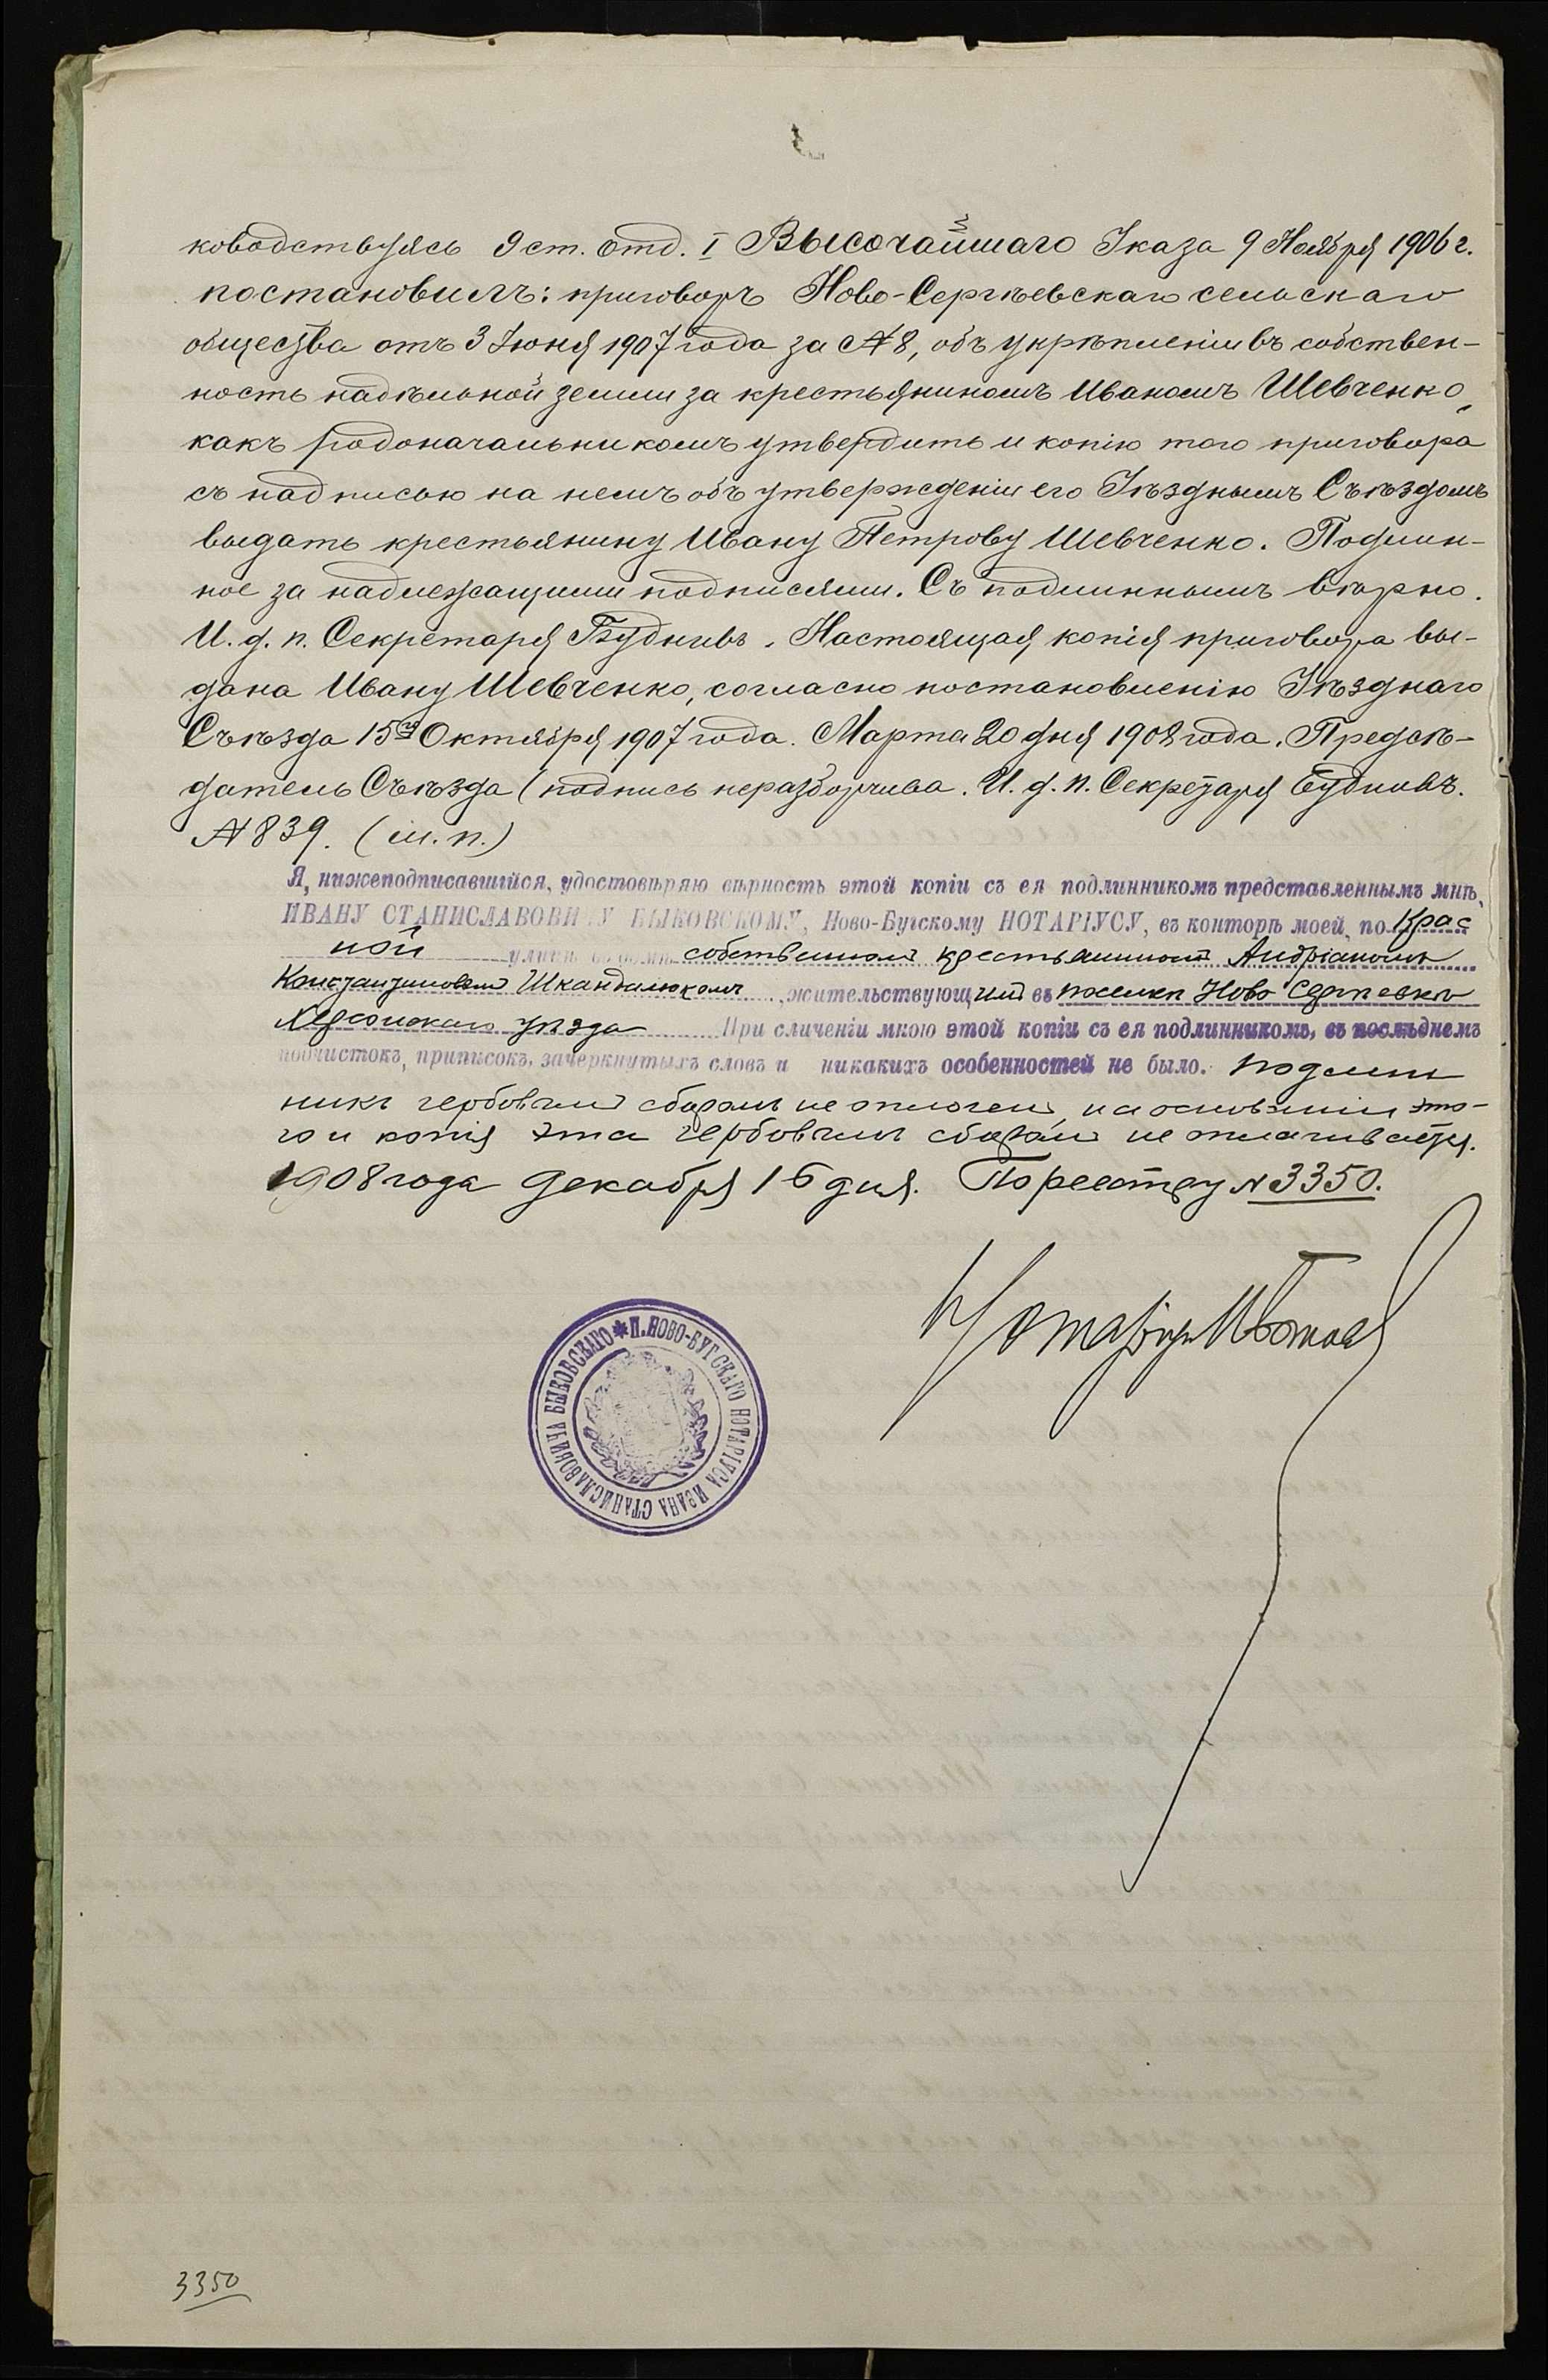 ководствуясь 9 ст. отд. I Высочайшаго Указа 9 Ноября 1906 г.
постановилъ: приговоръ Ново-Сергѣевскаго сельскаго
общества отъ 3 Іюня 1907 года за № 8, объ укрѣпленіи въ собствен-
ность надѣльной земли за крестьяниномъ Иваномъ Шевченко,
какъ родоначальникомъ утвердить и копію того приговора
съ надписью на немъ объ утвержденіи его Уѣзднымъ Съѣздомъ
выдать крестьянину Ивану Петрову Шевченко. Подлин-
ное за надлежащими подписями. Съ подлиннымъ вѣрно.
И. д. п. Секретаря Будновъ. Настоящая копія приговора вы-
дана Ивану Шевченко, согласно постановленію Уѣзднаго
Съѣзда 15го Октября 1907 года. Марта 20 дня 1908 года. Предсѣ-
датель Съѣзда (подпись неразборчива. И. д. п. Секретаря Будновъ.
№ 839. (м. п.)
Я, нижеподписавшійся, удостовѣряю вѣрность этой копіи съ ея подлинникомъ представленнымъ мнѣ,
ИВАНУ СТАНИСЛАВОВИЧУ БЫКОВСКОМУ, Ново-Бугскому НОТАРІУСУ, въ конторѣ моей, по Крас
ной улицѣ въ домѣ собственномъ крестьяниномъ Андріаномъ
Константиновымъ Шкандалюкомъ, жительствующимъ въ поселкѣ Ново Сергѣевкѣ
Херсонскаго уѣзда При сличеніи мною этой копіи съ ея подлинникомъ, въ послѣднемъ
подчистокъ, приписокъ, зачеркнутыхъ словъ и никакихъ особенностей не было. Подлин
никъ гербовымъ сборомъ не оплоченъ, на основаніи это-
го и копія эта гербовымъ сборомъ не оплачивается.
1908 года Декабря 16 дня. По реестру № 3350.
Нотаріусъ
* П. НОВО-БУГСКАГО НОТАРІУСА ИВАНА СТАНИСЛАВОВИЧА БЫКОВСКАГО
3350